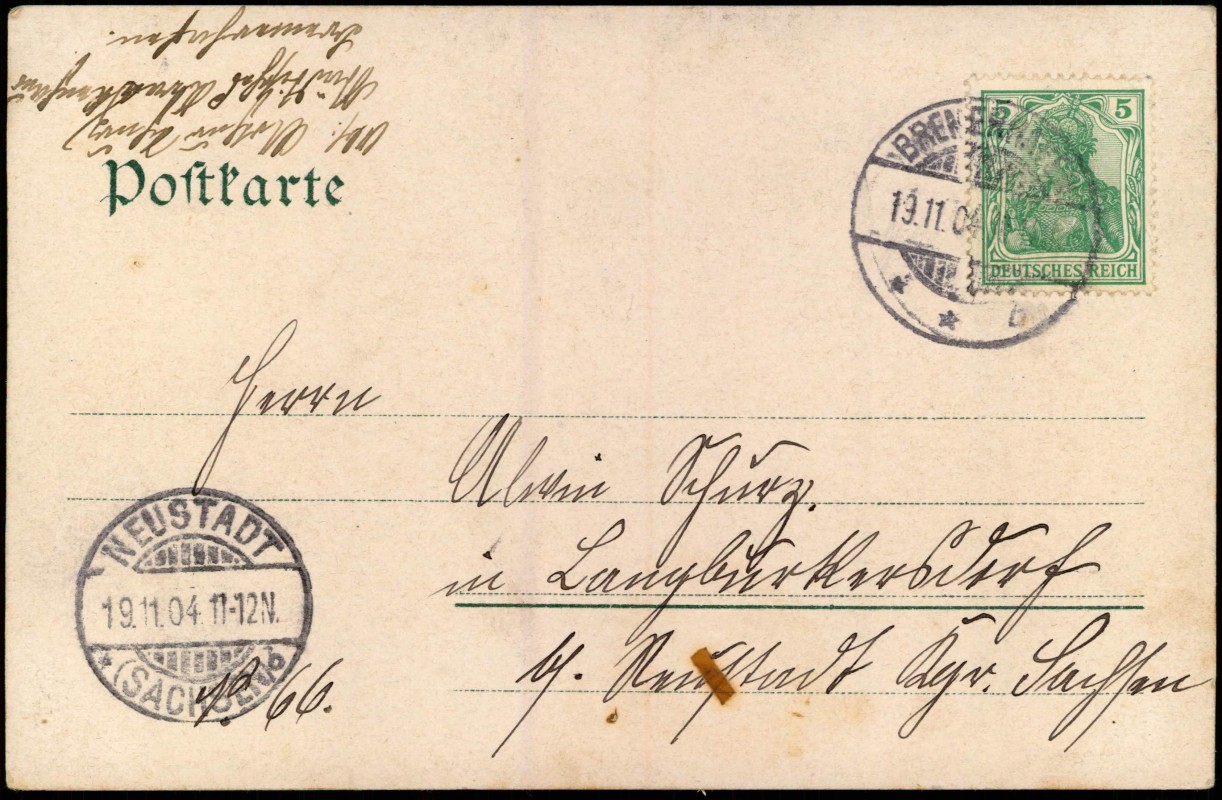 Postkarte
5 5
DEUTSCHES REICH
19.11.04
b
Herrn
Alwin Schurz.
in Langburkersdorf
b/. Neustadt Kgr. Sachsen
NEUSTADT
19.11.04. 11-12N.
(SACHSEN) b
No. 66.
Bremerhafen.